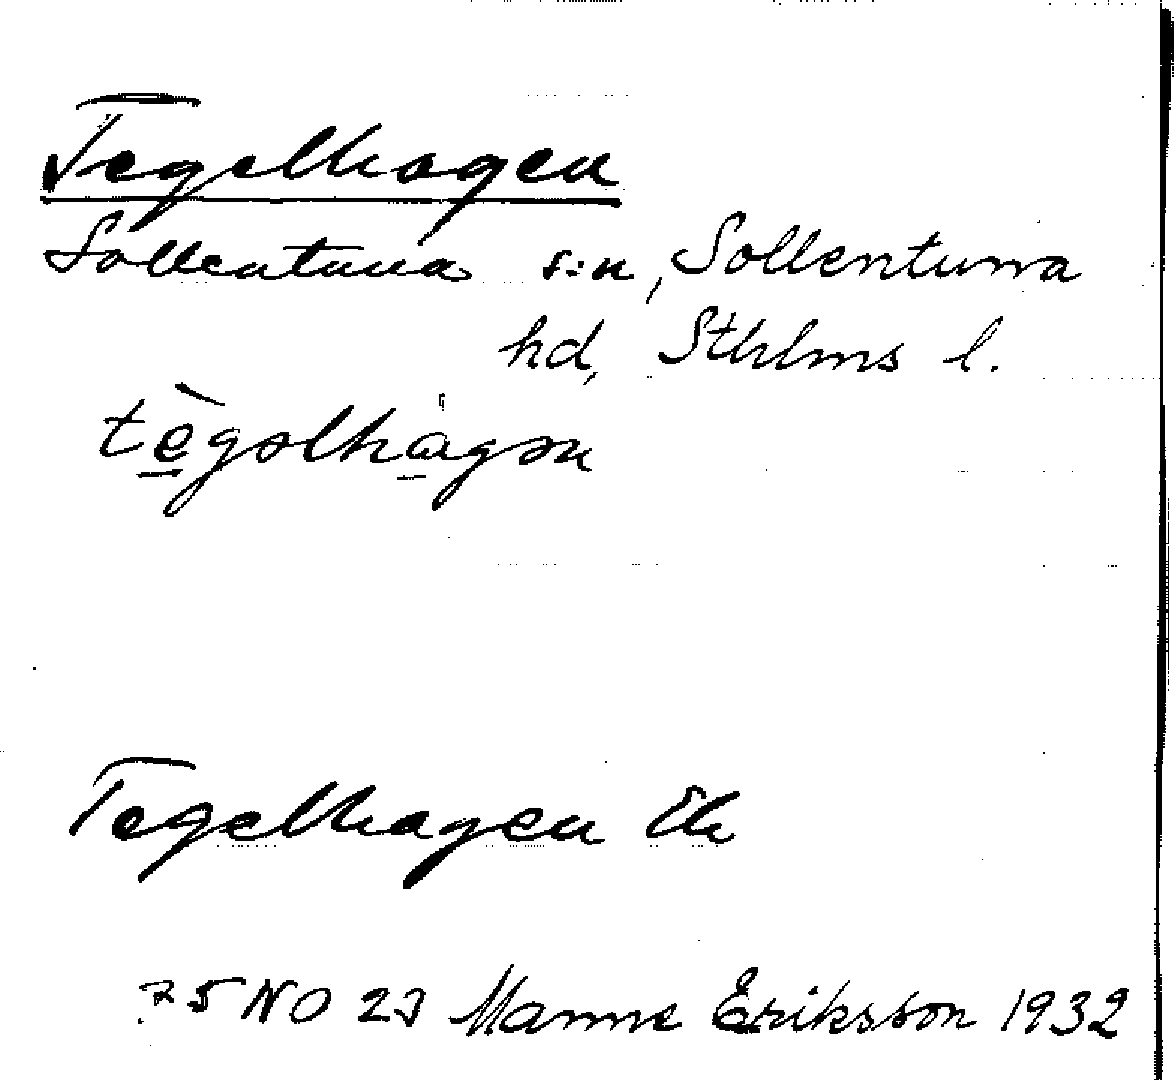 Tegelhagen
Sollentuna s:n, Sollentuna
hd, Sthlms l.
tègəlhágən
Tegelhagen Ek
75 NO 27 Manne Eriksson 1932